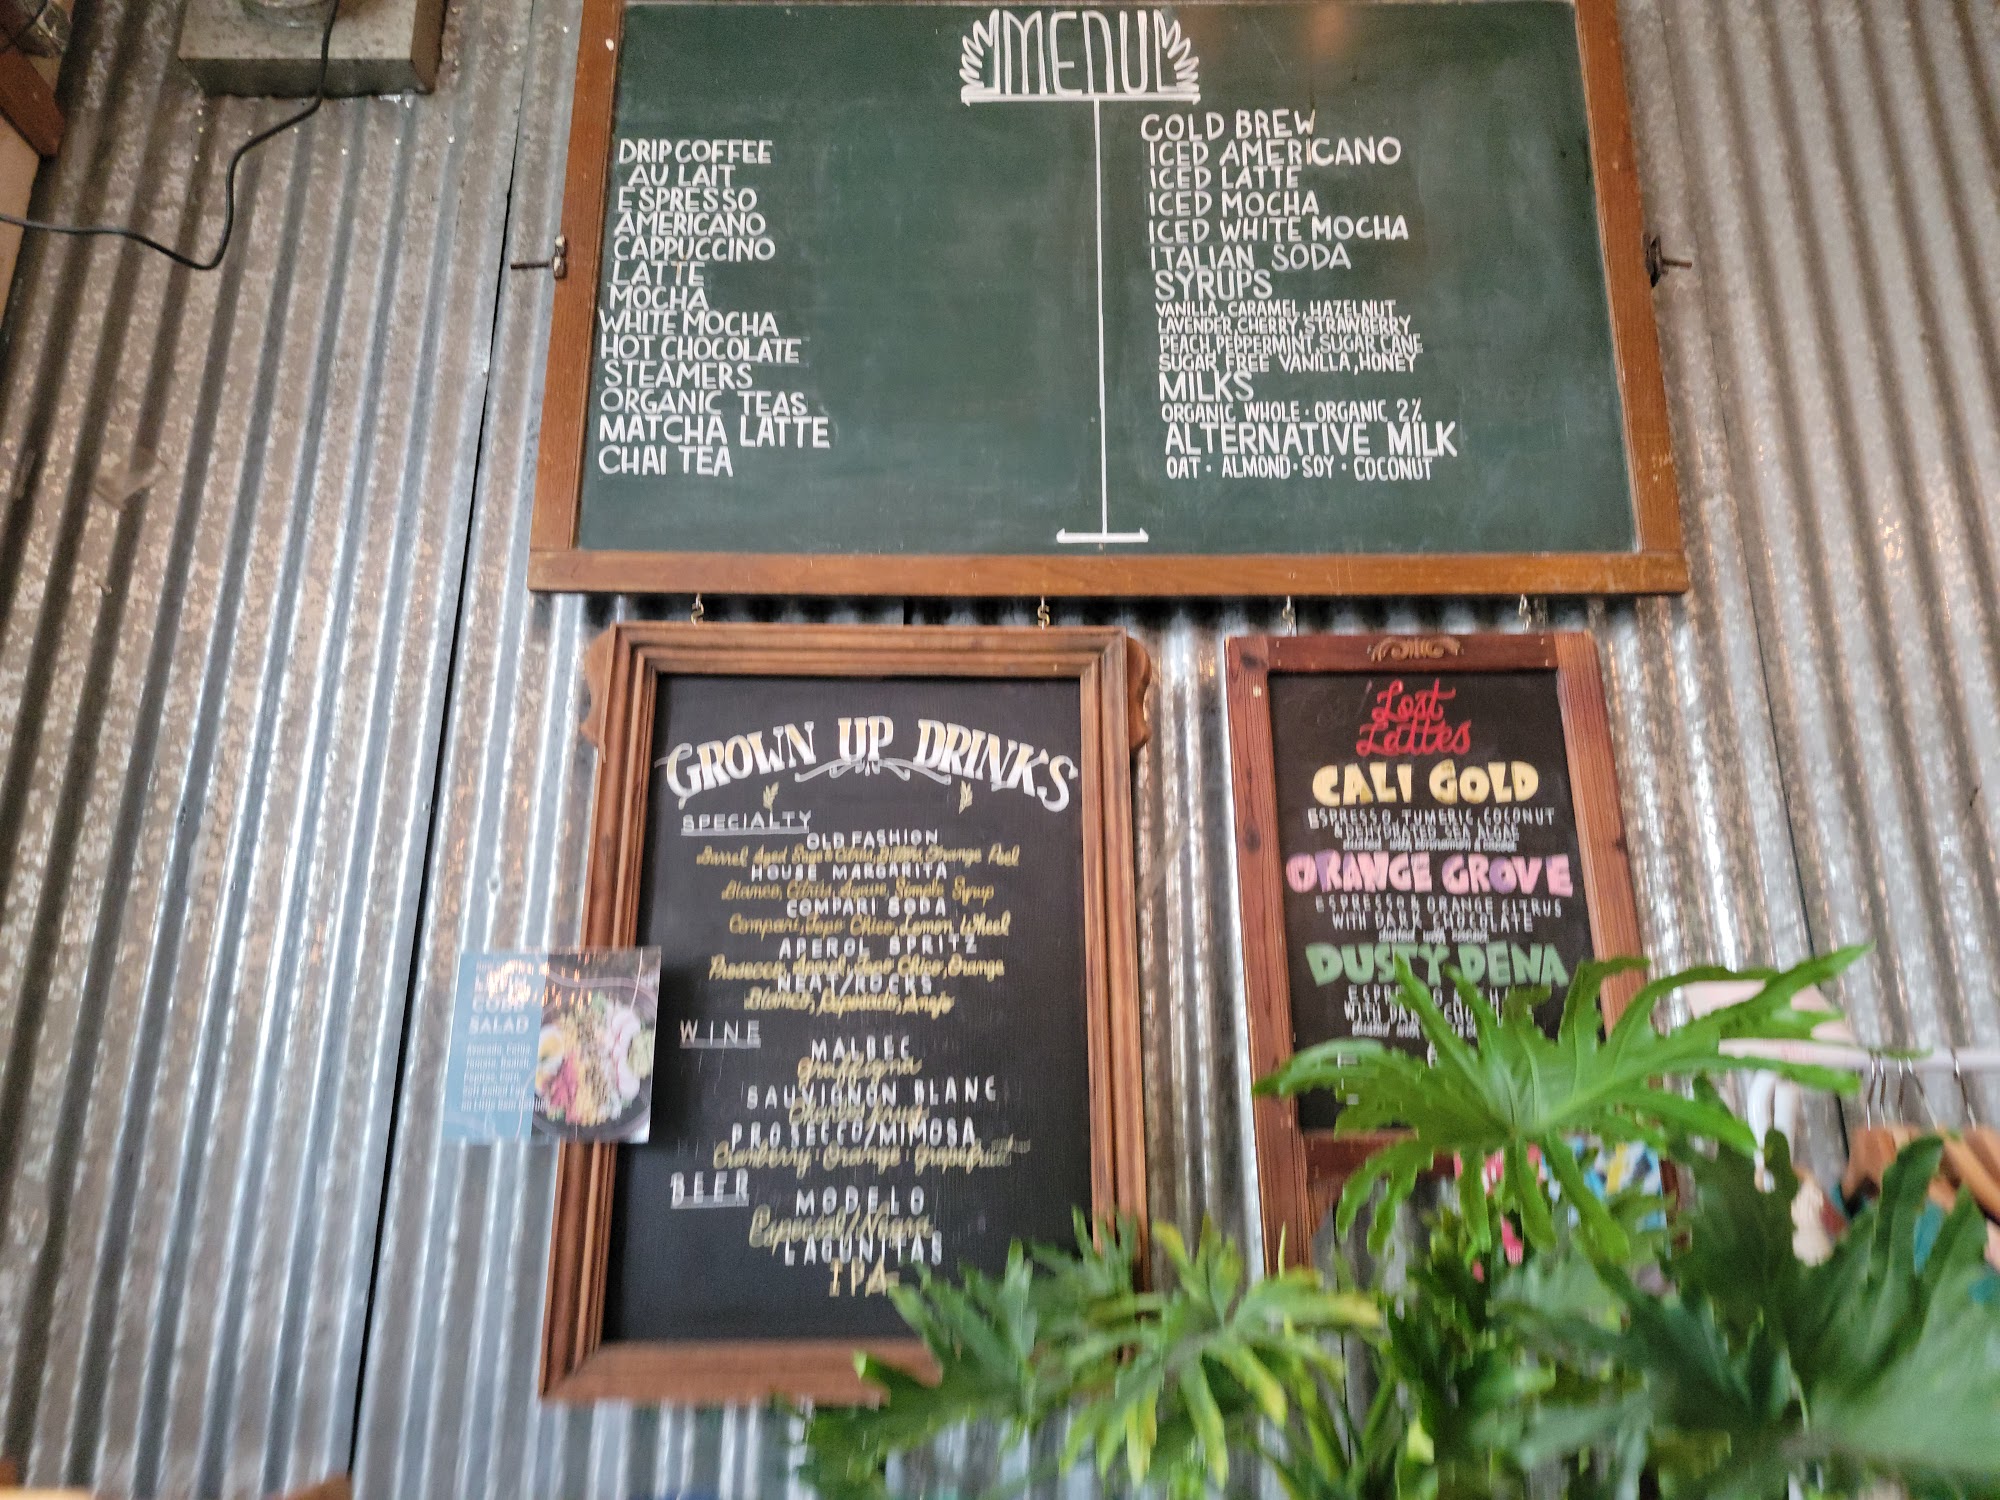 MENU
DRIP COFFEE
AU LAIT
ESPRESSO
AMERICANO
CAPPUCCINO
LATTE
MOCHA
WHITE MOCHA
HOT CHOCOLATE
STEAMERS
ORGANIC TEAS
MATCHA LATTE
CHAI TEA
COLD BREW
ICED AMERICANO
ICED LATTE
ICED MOCHA
ICED WHITE MOCHA
ITALIAN SODA
SYRUPS
VANILLA, CARAMEL, HAZELNUT
LAVENDER, CHERRY, STRAWBERRY
PEACH, PEPPERMINT, SUGAR CANE
SUGAR FREE VANILLA, HONEY
MILKS
ORGANIC WHOLE · ORGANIC 2%
ALTERNATIVE MILK
OAT · ALMOND · SOY · COCONUT
GROWN UP DRINKS
SPECIALTY
OLD FASHION
Barrel Aged Sugar Citrus, Bitters, Orange Peel
HOUSE MARGARITA
Blanco, Citrus, Agave, Simple Syrup
COMPARI SODA
Compari, Topo Chico, Lemon Wheel
APEROL SPRITZ
Prosecco, Aperol, Topo Chico, Orange
NEAT/ROCKS
Blanco, Reposado, Anejo
WINE
MALBEC
Graffigna
SAUVIGNON BLANC
PROSECCO/MIMOSA
Cranberry · Orange · Grapefruit
BEER
MODELO
Especial/Negra
LAGUNITAS
IPA
Lost
Lattes
CALI GOLD
ESPRESSO, TUMERIC, COCONUT
& DEHYDRATED SEA ALGAE
dusted with
ORANGE GROVE
ESPRESSO & ORANGE CITRUS
WITH DARK CHOCOLATE
dusted with
DUSTY DENA
WITH DARK
dusted with
COBB
SALAD